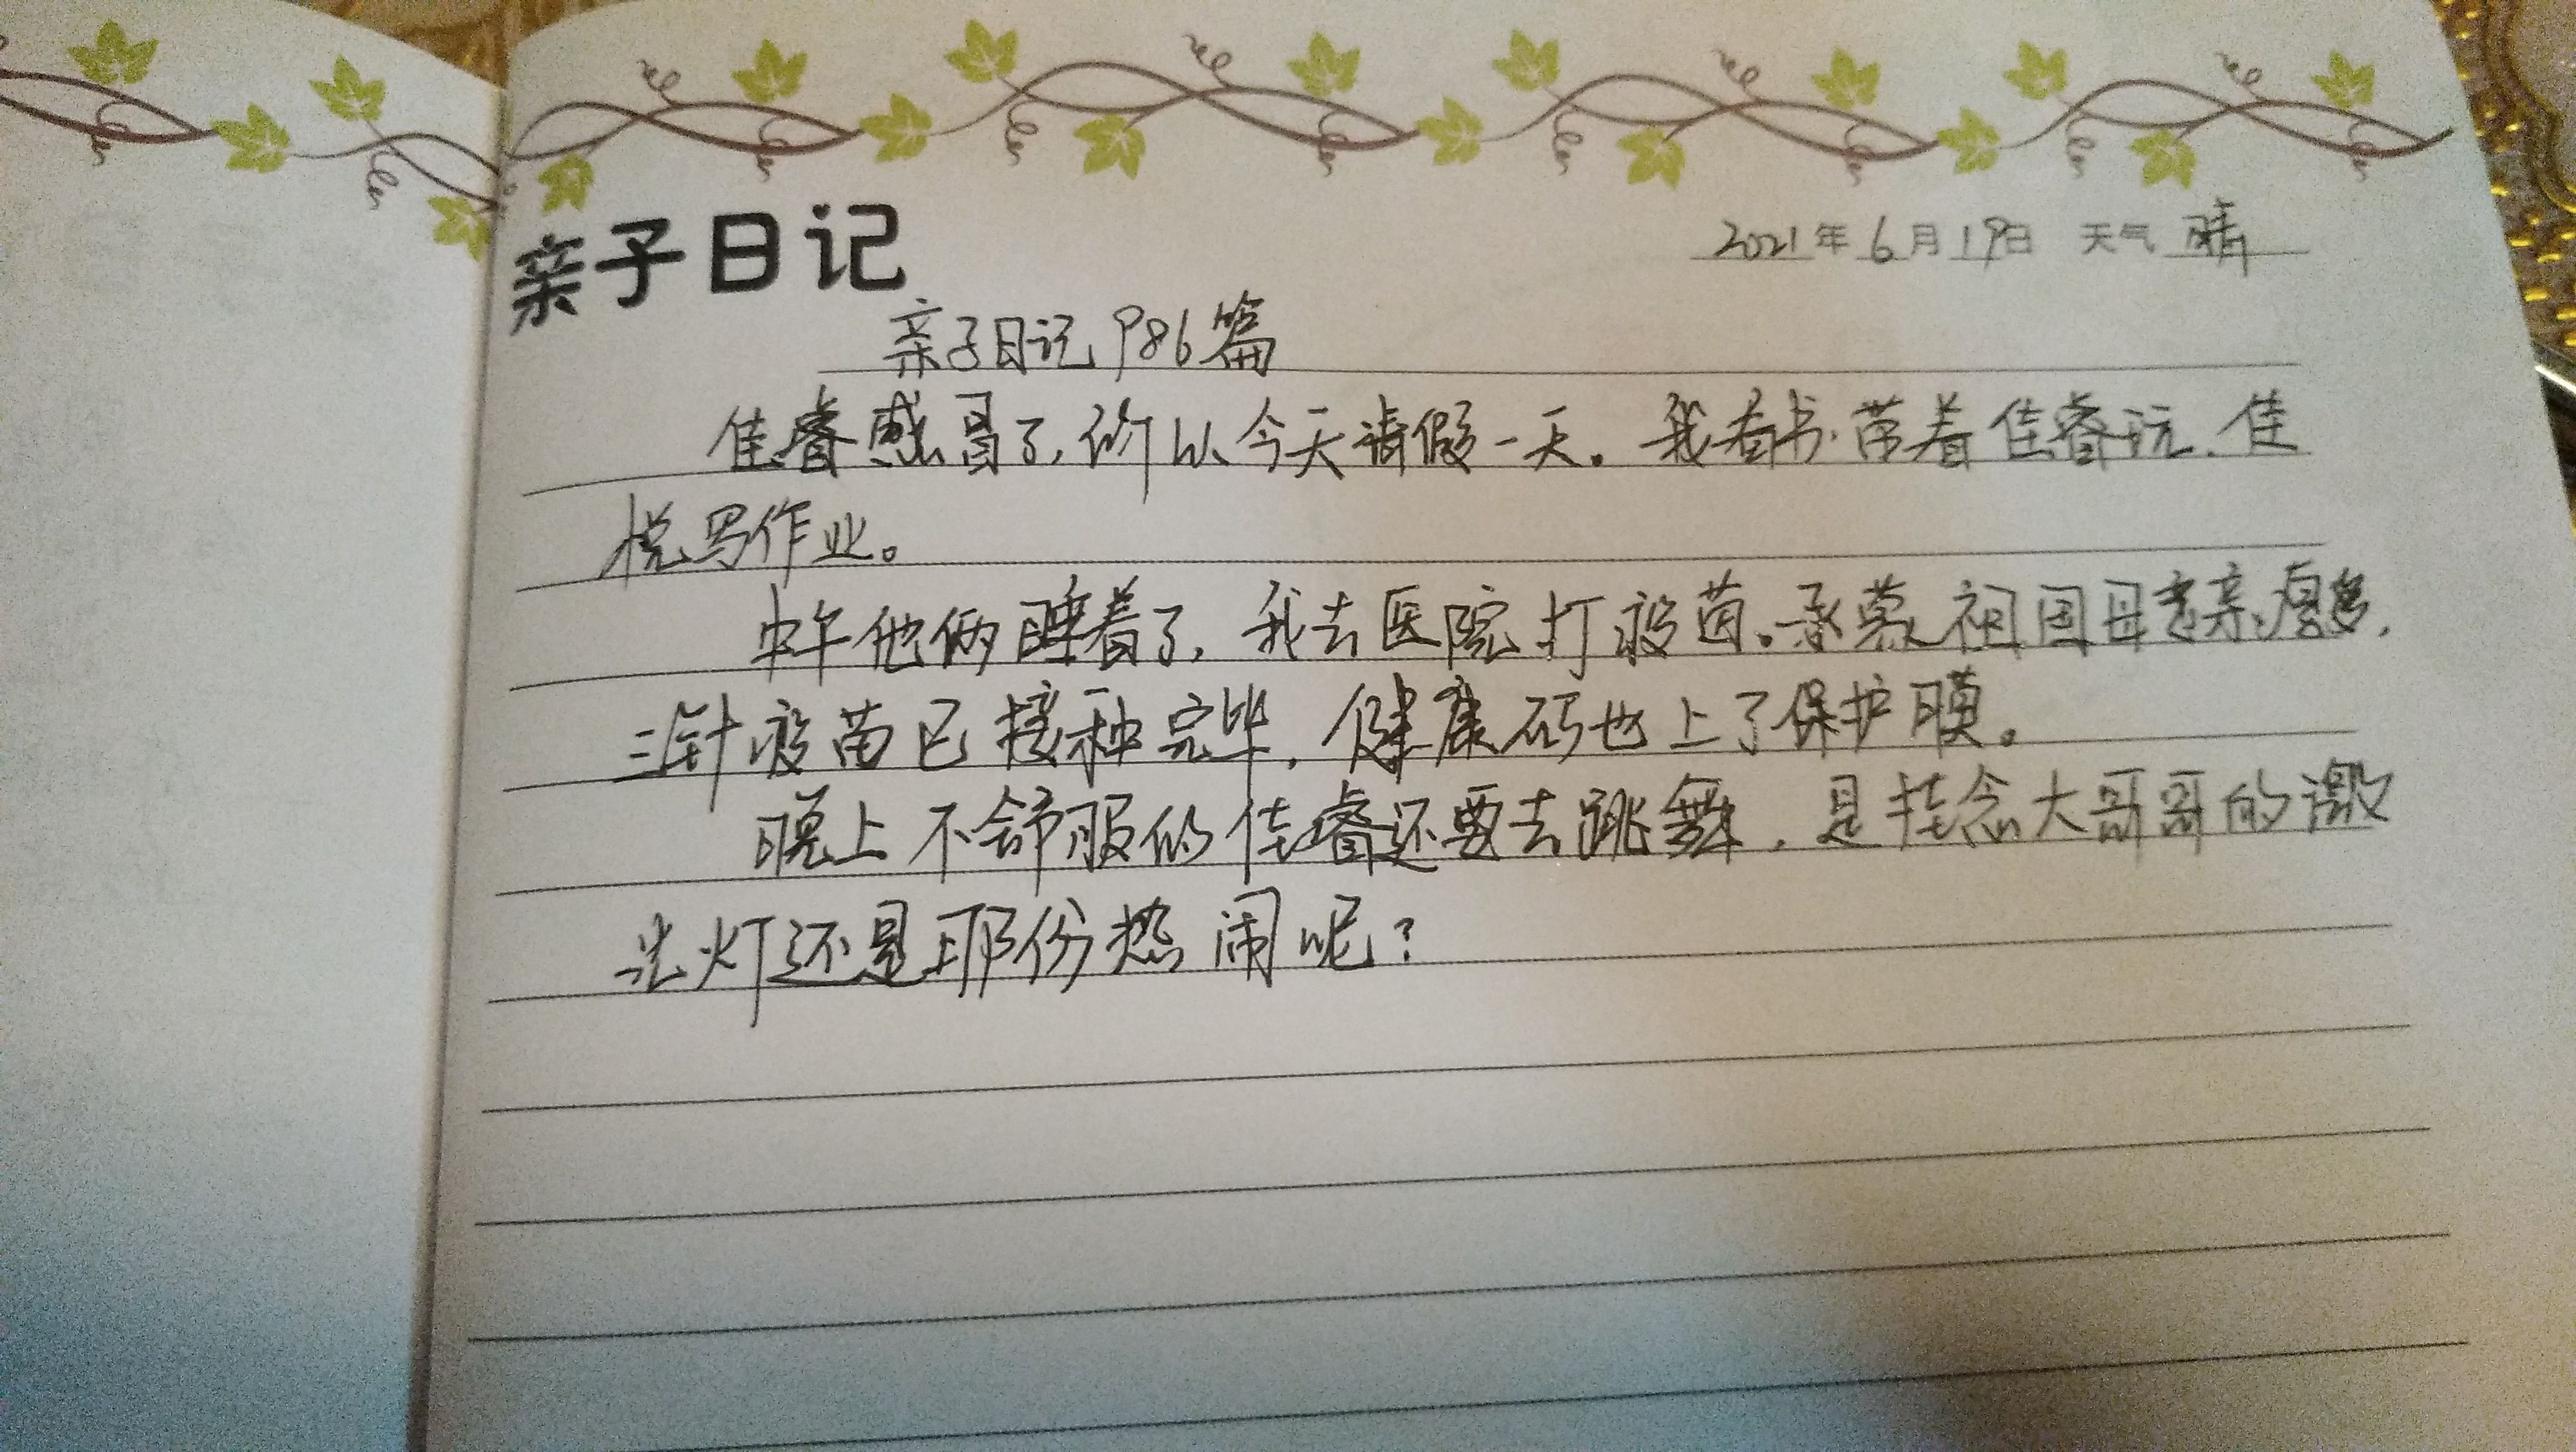 亲子日记
2021年6月19日 天气 晴
亲子日记986篇
佳睿感冒了,所以今天请假一天。我看书,带着佳睿玩,佳
悦写作业。
中午他俩睡着了,我去医院打疫苗。承蒙祖国母亲厚爱,
三针疫苗已接种完毕,健康码也上了保护膜。
晚上不舒服的佳睿还要去跳舞,是挂念大哥哥的激
光灯还是那份热闹呢?